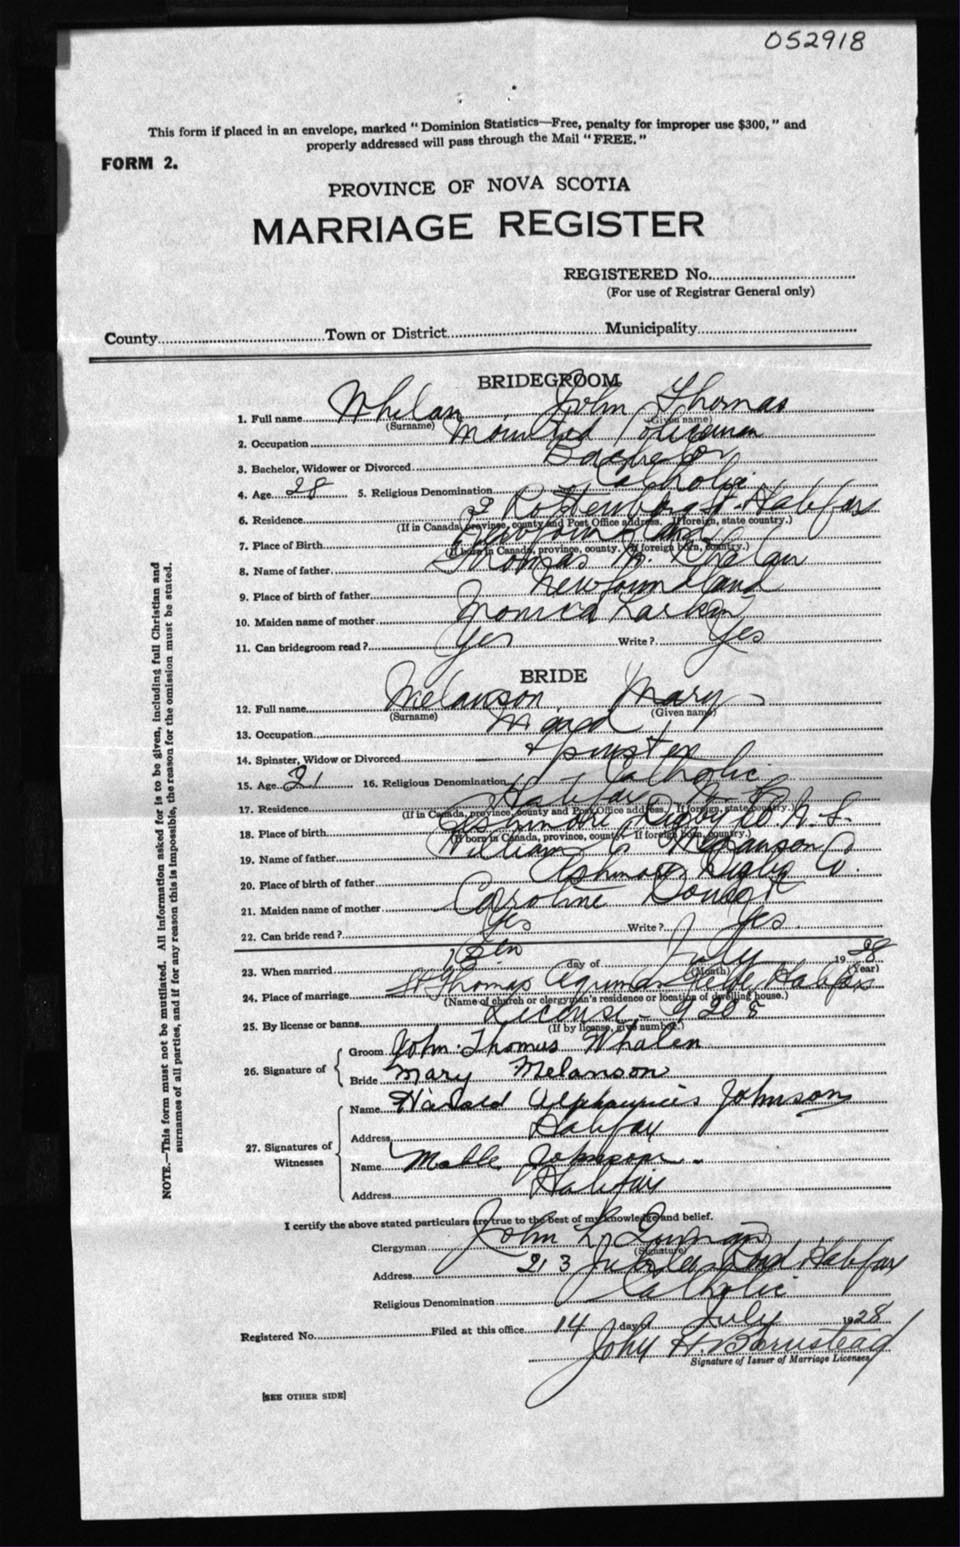 052918
This form if placed in an envelope, marked "Dominion Statistics—Free, penalty for improper use $300," and
properly addressed will pass through the Mail "FREE."
FORM 2.
PROVINCE OF NOVA SCOTIA
MARRIAGE REGISTER
REGISTERED No.
(For use of Registrar General only)
County Town or District Municipality
BRIDEGROOM
1. Full name Whelan John Thomas
(Surname) (Given name)
2. Occupation Mounted Policeman
3. Bachelor, Widower or Divorced Bachelor
4. Age 28 5. Religious Denomination Catholic
6. Residence 2 St. Halifax
(If in Canada, province, county and Post Office address. If foreign, state country.)
7. Place of Birth Newfoundland
(If born in Canada, province, county. If foreign born, country.)
8. Name of father Thomas Whelan
9. Place of birth of father Newfoundland
10. Maiden name of mother Monica Larkin
11. Can bridegroom read? Yes Write? Yes
BRIDE
12. Full name Melanson Mary
(Surname) (Given name)
13. Occupation Maid
14. Spinster, Widow or Divorced Spinster
15. Age 21 16. Religious Denomination Catholic
17. Residence Halifax
(If in Canada, province, county and Post Office address. If foreign, state country.)
18. Place of birth Digby Co N.S.
(If born in Canada, province, county. If foreign born, country.)
19. Name of father William C Melanson
20. Place of birth of father Digby Co.
21. Maiden name of mother Caroline
22. Can bride read? Yes Write? Yes
23. When married day of July 1928
(Month) (Year)
24. Place of marriage St Thomas Halifax
(Name of church or clergyman's residence or location of dwelling house.)
25. By license or banns License - 9208
(If by license, give number.)
26. Signature of
Groom John Thomas Whalen
Bride Mary Melanson
27. Signatures of Witnesses
Name Harold Johnson
Address Halifax
Name Mable Johnson
Address Halifax
I certify the above stated particulars are true to the best of my knowledge and belief.
Clergyman John L.
(Signature)
Address 213 Halifax
Religious Denomination Catholic
Registered No. Filed at this office 14 day of July 1928
John H. Barnstead
Signature of Issuer of Marriage Licenses
[SEE OTHER SIDE]
NOTE.—This form must not be mutilated. All information asked for is to be given, including full Christian and
surnames of all parties, and if for any reason this is impossible, the reason for the omission must be stated.